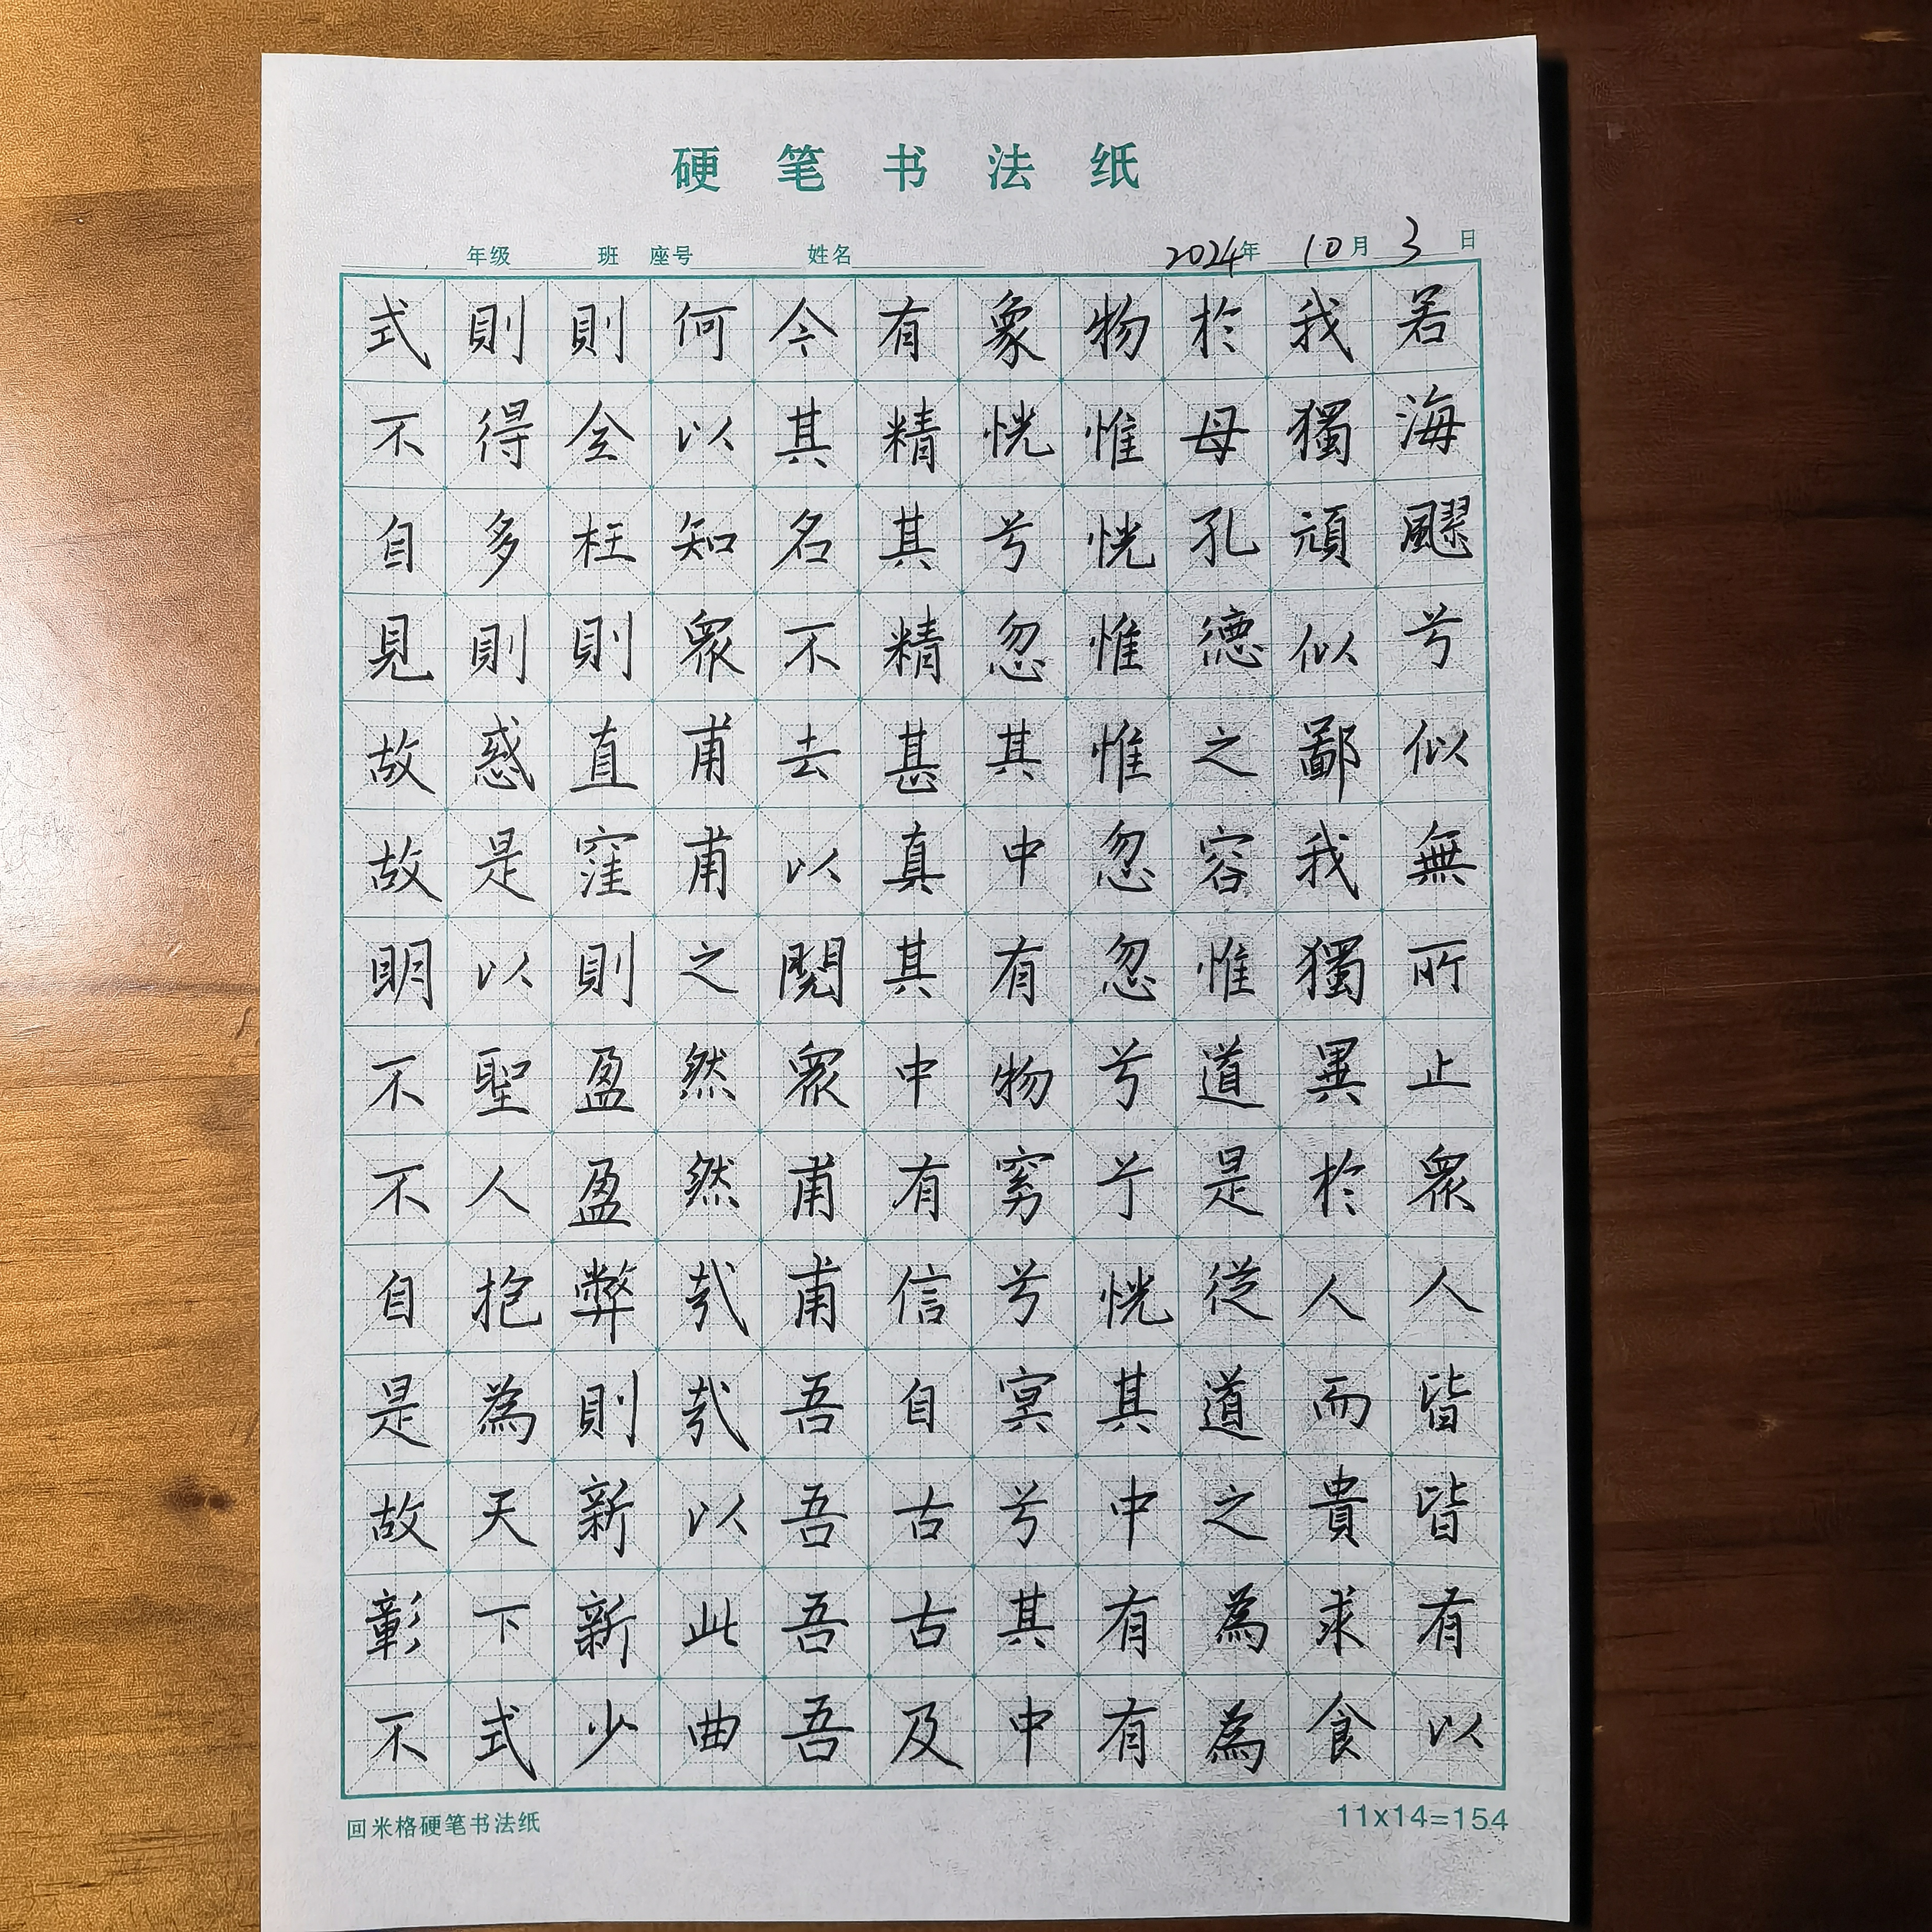 硬笔书法纸
年级 班 座号 姓名 2024年 10月 3日
若海飂兮似無所止眾人皆皆有以
我獨頑似鄙我獨異於人而貴求食
於母孔德之容惟道是從道之為為
物惟恍惟惟忽忽兮兮恍其中有有
象恍兮忽其中有物窈兮冥兮其中
有精其精甚真其中有信自古古及
今其名不去以閱眾甫甫吾吾吾吾
何以知眾甫甫之然然哉哉以此曲
則全枉則直窪則盈盈弊則新新少
則得多則惑是以聖人抱為天下式
式不自見故故明不不自是故彰不
回米格硬笔书法纸
11x14=154